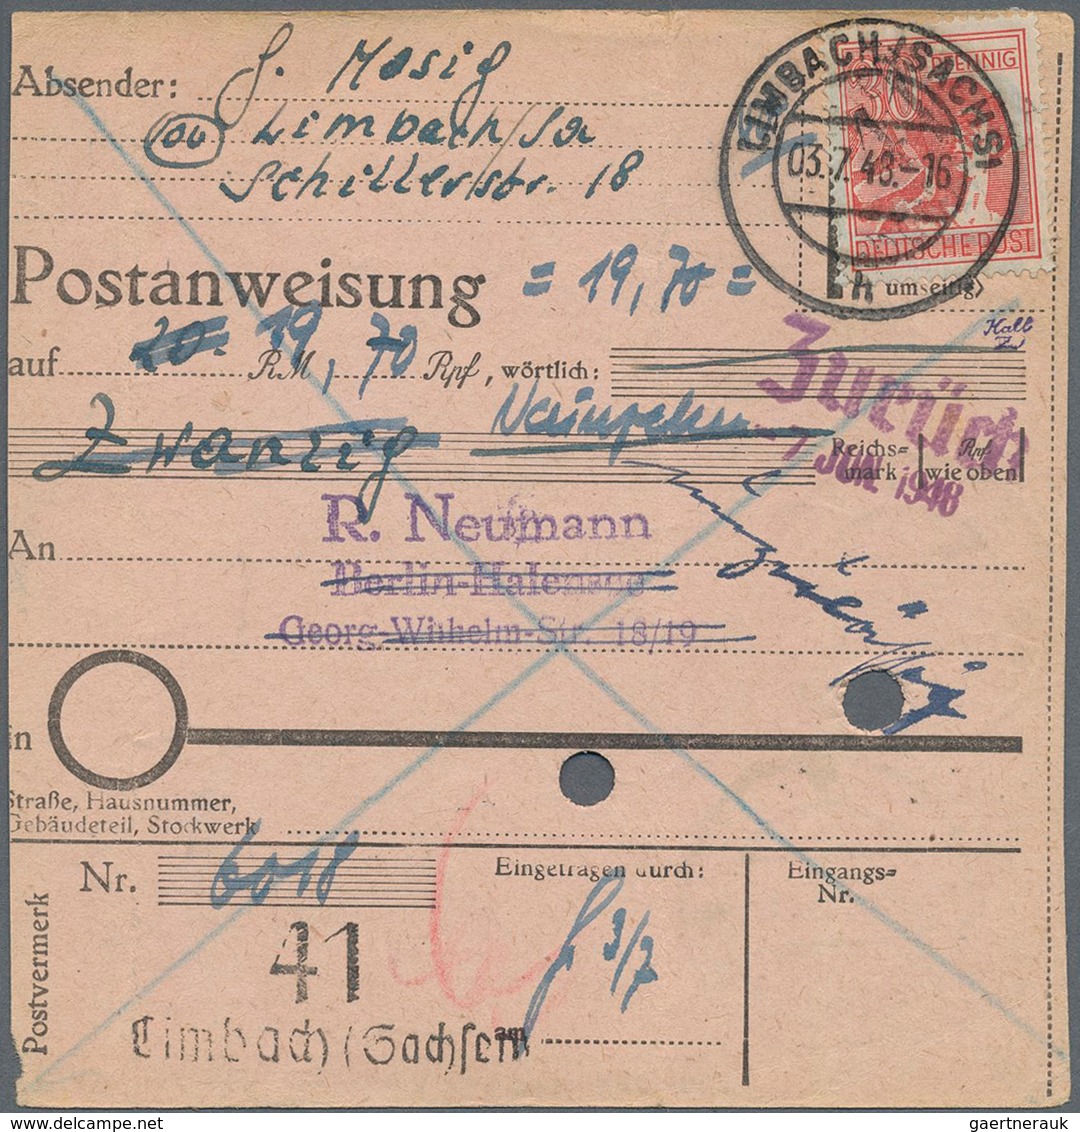 Absender: J. Mosig
10b Limbach/Sa
Schillerstr. 18
LIMBACH (SACHS)
03.7.48.-16
30 PFENNIG
DEUTSCHE POST
umseitig)
Postanweisung = 19,70 =
auf 20.- 19 RM, 70 Rpf, wörtlich:
Zurück
Zwanzig Neunzehn
Reichs= mark Rpf wie oben
-7 JUL. 1948
An R. Neumann
Berlin-Halensee
Georg-Wilhelm-Str. 18/19
unzulässig
in
Straße, Hausnummer,
Gebäudeteil, Stockwerk
Postvermerk
Nr. 6018
Eingetragen durch:
Eingangs=
Nr.
3/7
41
Limbach (Sachsen)
am
gaertnerauk